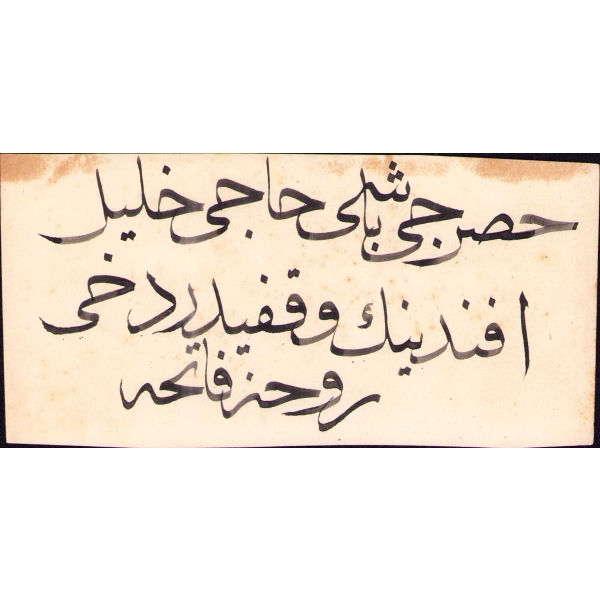 حصرجی باشی حاجی خلیل
افندینك وقفیدر دخی
روحنه فاتحه